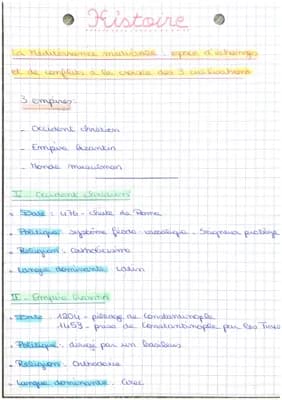 Histoire
La Méditerranée médiévale : espace d'échanges
et de conflits à la croisée des 3 civilisations
3 empires :
- Occident chrétien
- Empire bizantin
- Monde musulman
I - Occident chrétien
• Date : 476 - chute de Rome
• Politique : système féodo vassalique. Seigneur protège
• Religion : Catholicisme
• Langue dominante : Latin
II - Empire bizantin
• Date : 1204 - pillage de Constantinople
1453 - prise de Constantinople par les Turcs
• Politique : dirigé par un basileus
• Religion : Orthodoxe
• Langue dominante : Grec